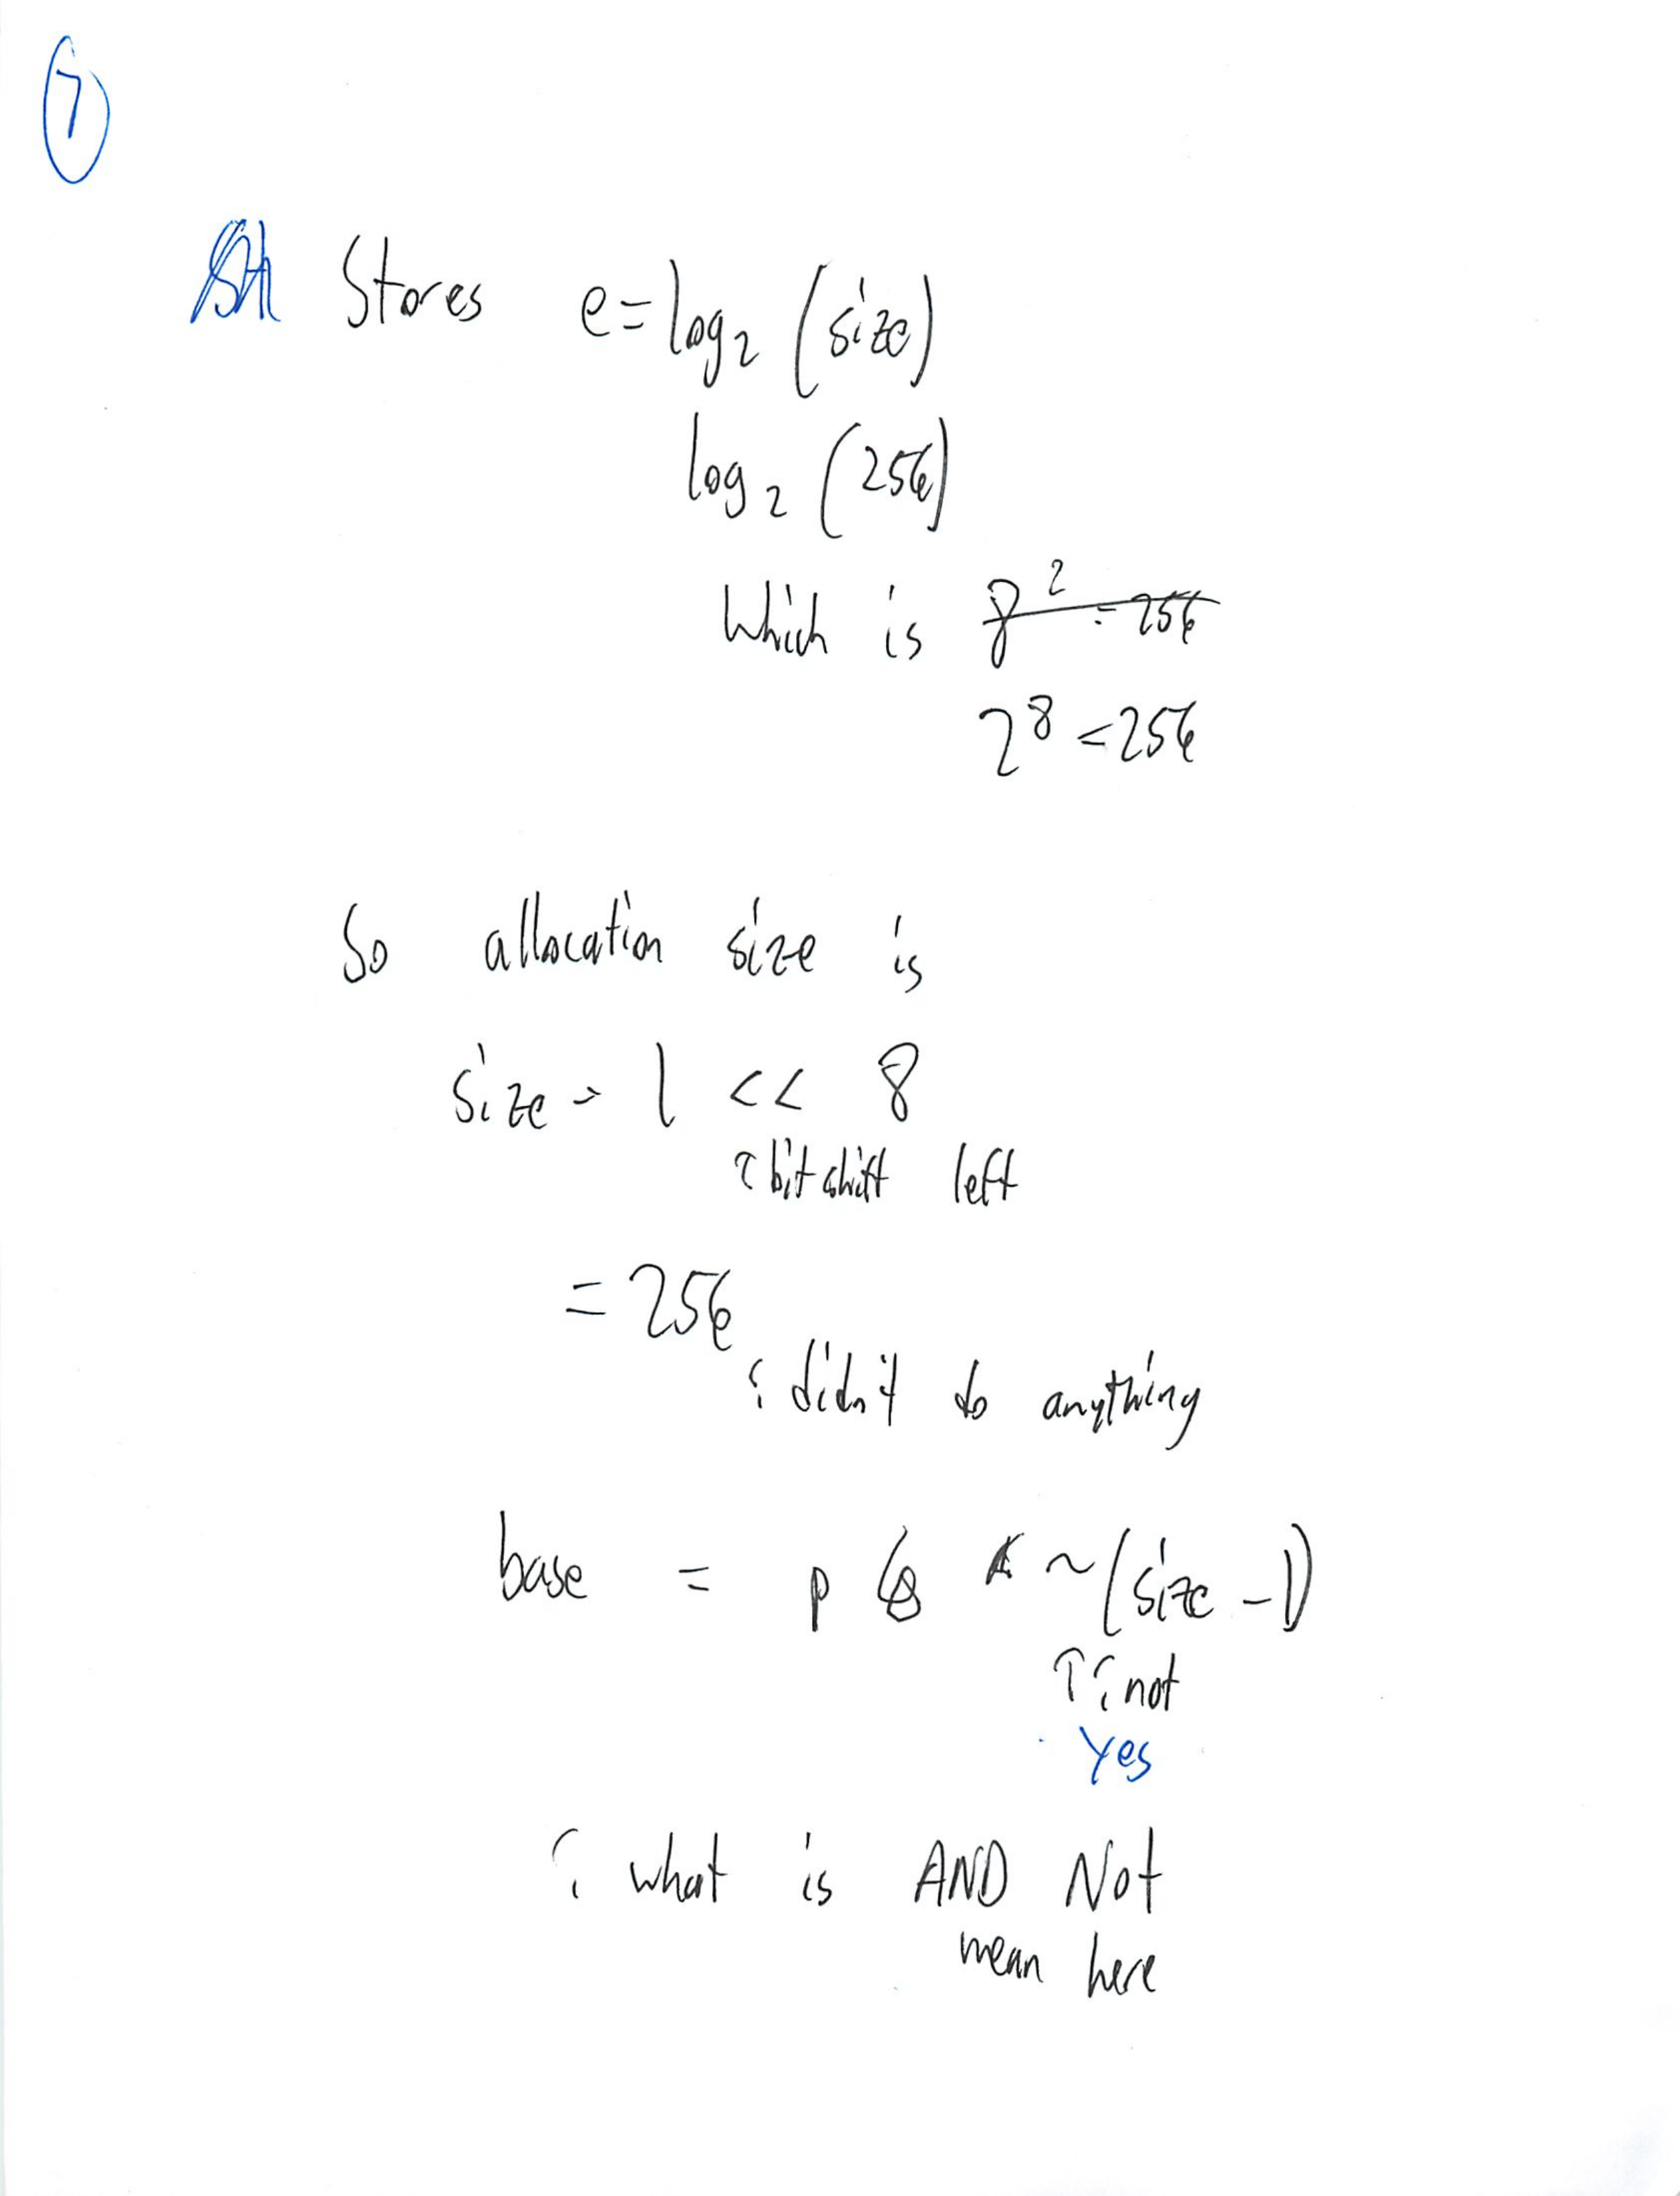 7
Stores e = log₂ (size)
log₂ (256)
Which is 8² = 256
2⁸ = 256
So allocation size is
size = 1 << 8
↑ bit shift left
= 256
¿ didn't do anything
base = p & ~(size - 1)
↑ ¿ not
Yes
¿ what is AND Not
mean here